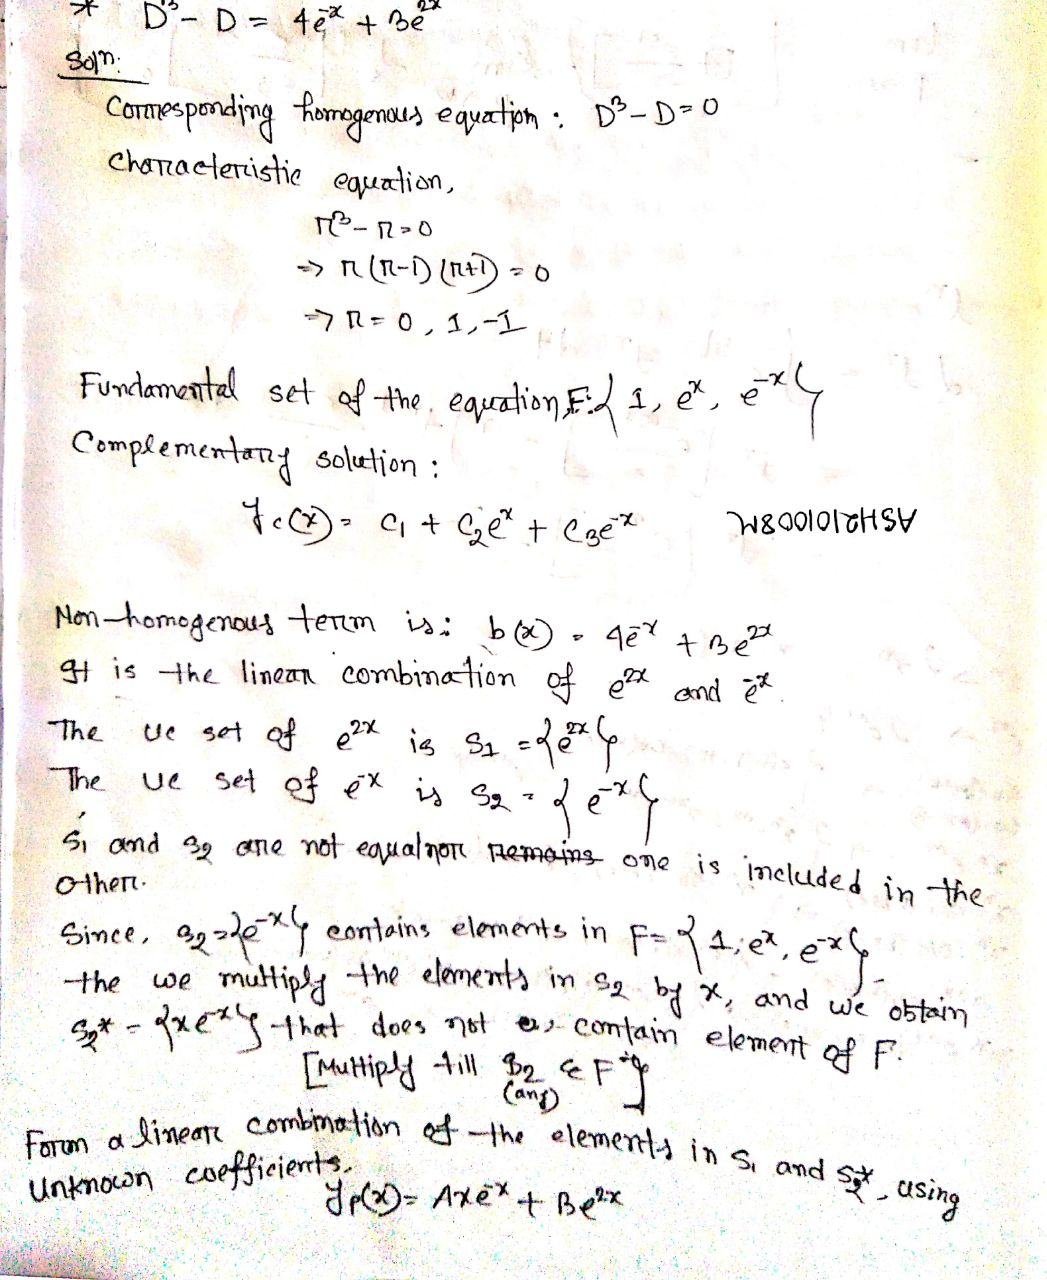 * D³ - D = 4e⁻ˣ + 3e²ˣ
Solⁿ:
Corresponding homogenous equation : D³ - D = 0
Characteristic equation,
r³ - r = 0
=> r (r-1) (r+1) = 0
=> r = 0, 1, -1
Fundamental set of the equation, F: { 1, eˣ, e⁻ˣ }
Complementary solution :
y_c(x) = c₁ + c₂eˣ + c₃e⁻ˣ
ASH2101008M
Non-homogenous term is: b(x) = 4e⁻ˣ + 3e²ˣ
It is the linear combination of e²ˣ and e⁻ˣ.
The UC set of e²ˣ is S₁ = {e²ˣ}
The UC set of e⁻ˣ is S₂ = { e⁻ˣ }
S₁ and S₂ are not equal nor remains one is included in the
other.
Since, S₂ = {e⁻ˣ} contains elements in F = { 1, eˣ, e⁻ˣ }
the we multiply the elements in S₂ by x, and we obtain
S₂* = {xe⁻ˣ} that does not contain element of F.
[Multiply till S₂ ∈ F
(any)
Form a linear combination of the elements in S₁ and S₂*, using
unknown coefficients.
y_p(x) = Axe⁻ˣ + Be²ˣ